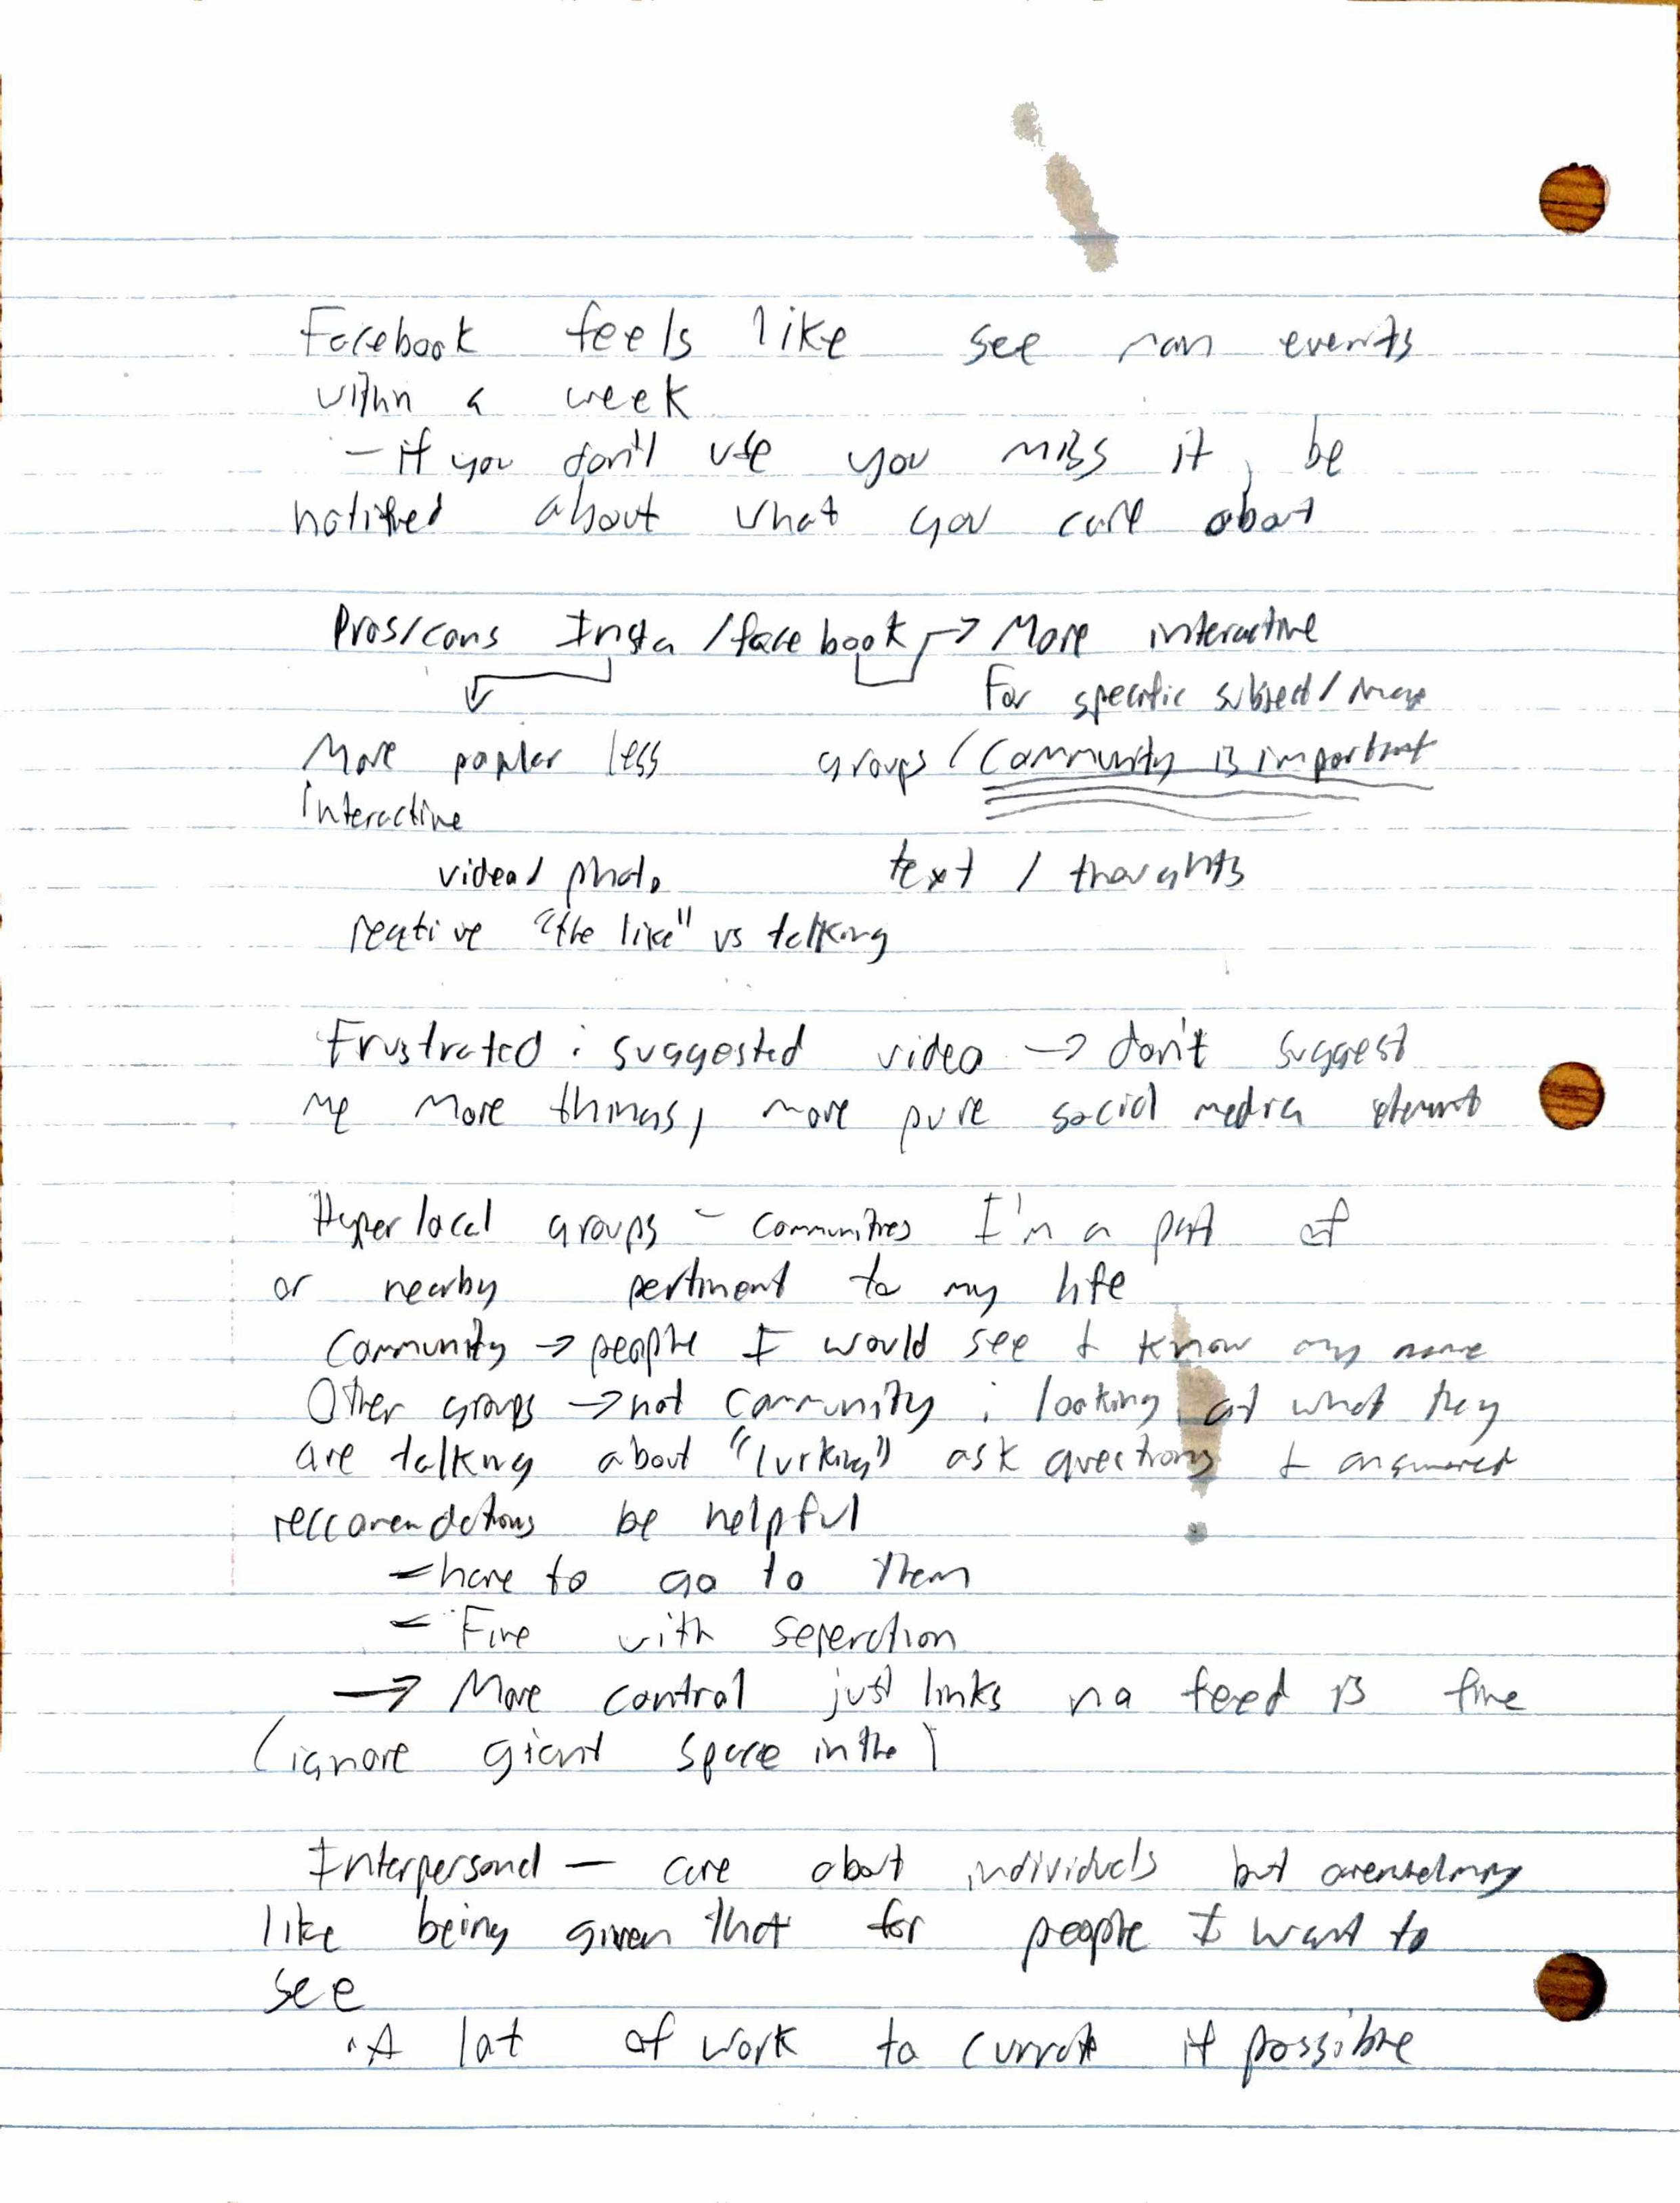 Facebook feels like see ran events
within a week
– if you don't use you miss it, be
notified about what you care about
Pros/cons Insta / facebook → More interactive
For specific subject /
More popler less groups (Community is important
interactive
video / photo text / thoughts
reative "the like" vs talking
Frustrated : suggested video → don't suggest
me more things, more pure social media
Hyper local groups - communities I'm a part of
or nearby pertinent to my life
Community → people I would see & know my name
Other groups → not community : looking at what they
are talking about "lurking" ask questions & answered
reccomendations be helpful
– have to go to them
– Fine with seperation
→ More control just links no feed is fine
(ignore giant space in the)
Interpersonal — care about individuals but
like being given that for people I want to
see
• A lot of work to currate if possible